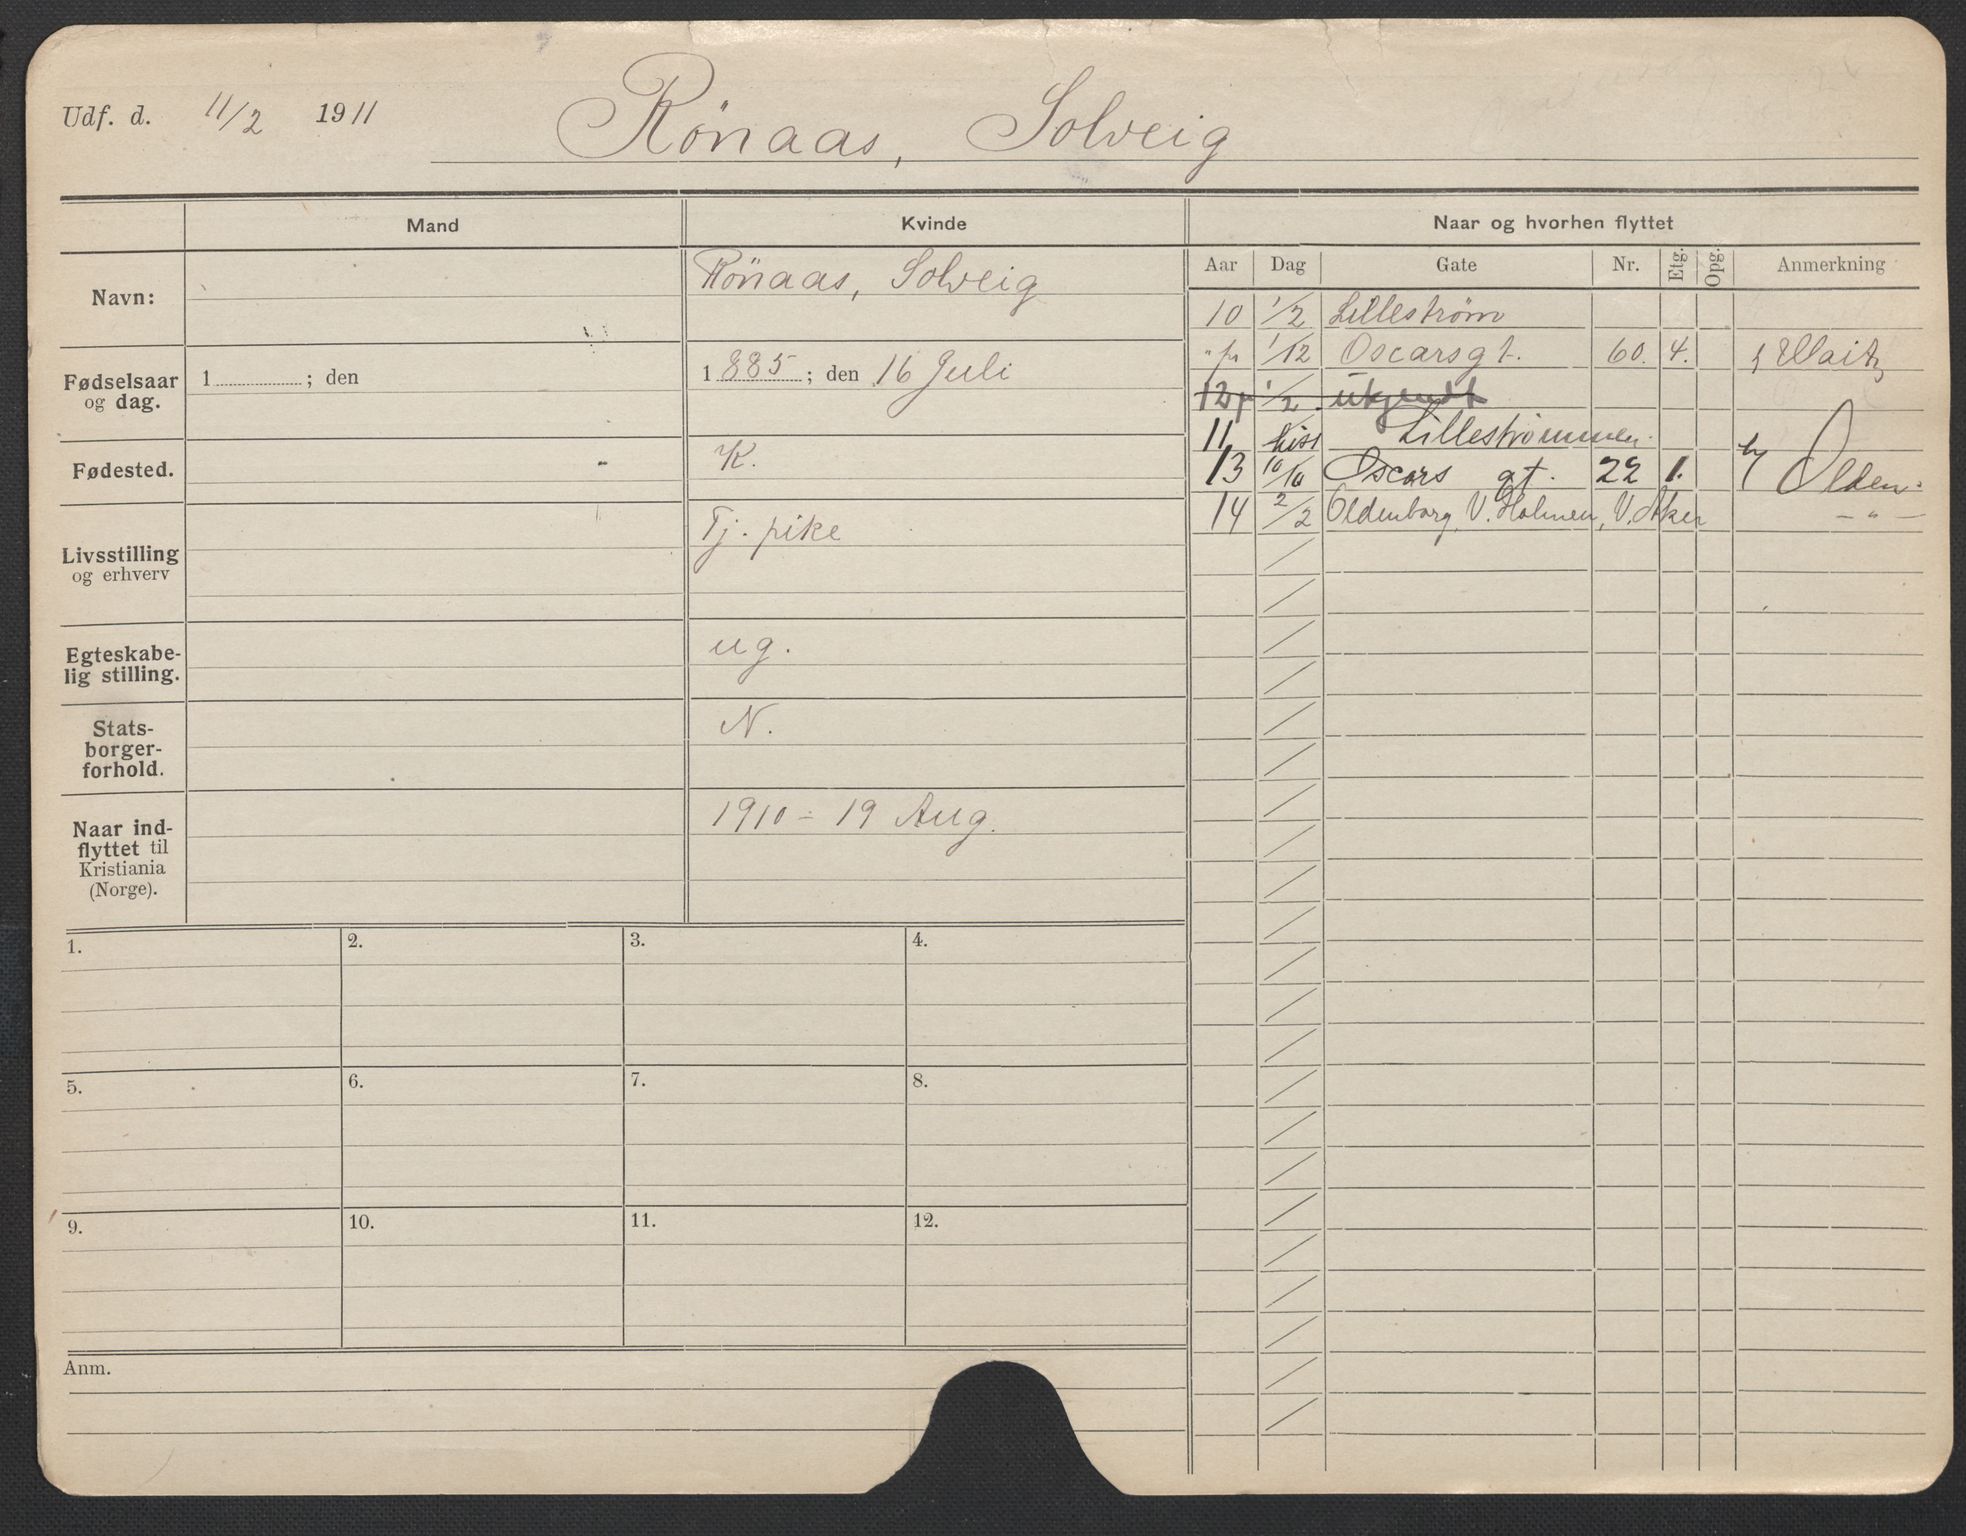 Udf. d. 11/2 1911 Rönaas, Solveig
Mand Kvinde Naar og hvorhen flyttet
Aar Dag Gate Nr. Etg. Opg. Anmerkning
Navn: Rönaas, Solveig
10 1/2 Lillestrøm
" 1/12 Oscarsgt. 60. 4.
Fødselsaar og dag. 1 ; den 1885 ; den 16 Juli
1/2 utgj
11 Lillestrømmen.
Fødested. K.
13 10/10 Oscars gt. 22 1. h/ Olden.
14 2/2 Oldenborg, V. Holmen, V. Aker - " -
Livsstilling og erhverv Tj. pike
Egteskabe-
lig stilling. ug.
Stats-
borger-
forhold. N.
Naar ind-
flyttet til
Kristiania
(Norge). 1910 - 19 Aug.
1. 2. 3. 4.
5. 6. 7. 8.
9. 10. 11. 12.
Anm.